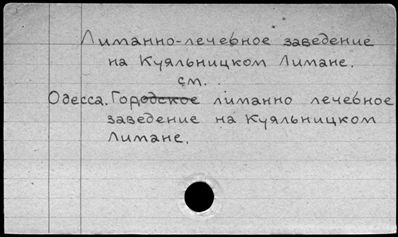 Лиманно-лечебное заведение
на Куяльницком Лимане.
см.
Одесса. Городское лиманно лечебное
заведение на Куяльницком
Лимане.